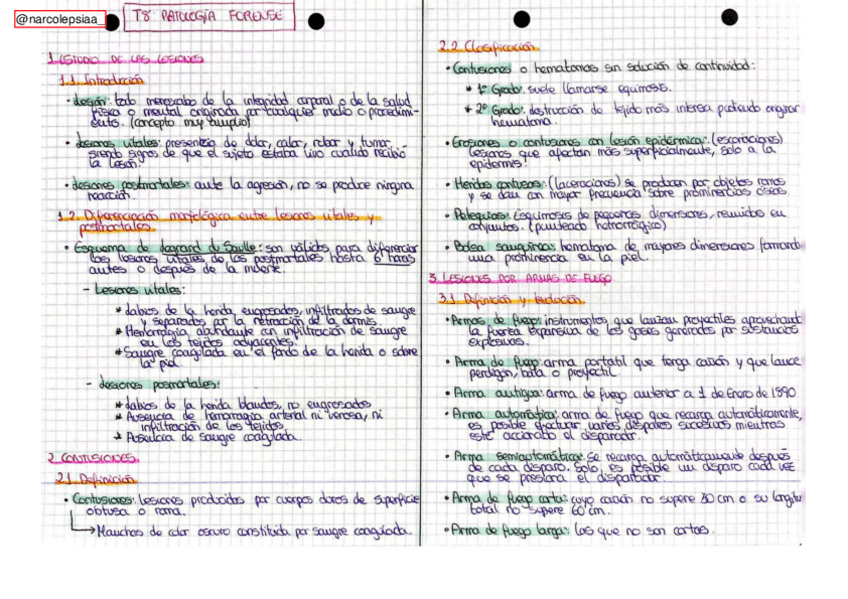 @narcolepsiaa_
T8 PATOLOGÍA FORENSE
1. ESTUDIO DE LAS LESIONES
1.1. Introducción
• Lesión: todo menoscabo de la integridad corporal o de la salud
física o mental originada por cualquier medio o procedimi-
ento. (concepto muy amplio)
• Lesiones vitales: presencia de dolor, calor, rubor y tumor,
siendo signos de que el sujeto estaba vivo cuando recibió
la lesión.
• Lesiones postmortales: ante la agresión, no se produce ninguna
reacción.
1.2. Diferenciación morfológica entre lesiones vitales y
postmortales.
• Esquema de Legrand du Saulle: son válidos para diferenciar
las lesiones vitales de las postmortales hasta 6 horas
antes o después de la muerte.
- Lesiones vitales:
* Labios de la herida, engrosados, infiltrados de sangre
y separados por la retracción de la dermis.
* Hemorragia abundante con infiltración de sangre
en los tejidos adyacentes.
* Sangre coagulada en el fondo de la herida o sobre
la piel.
- Lesiones posmortales:
* Labios de la herida blandos, no engrosados
* Ausencia de hemorragia arterial ni venosa, ni
infiltración de los tejidos.
* Ausencia de sangre coagulada.
2. CONTUSIONES.
2.1. Definición
• Contusiones: lesiones producidas por cuerpos duros de superficie
obtusa o roma.
Manchas de color oscuro constituida por sangre coagulada.
2.2 Clasificación.
• Contusiones o hematomas sin solución de continuidad:
* 1º Grado: suele llamarse equimosis.
* 2º Grado: destrucción de tejido más intensa pudiendo originar
hematoma.
• Erosiones o contusiones con lesión epidérmica: (escoriaciones)
lesiones que afectan más superficialmente, solo a la
epidermis.
• Heridas contusas: (laceraciones) se producen por objetos romos
y se dan con mayor frecuencia sobre prominencias óseas
• Petequias: Equimosis de pequeñas dimensiones, reunidas en
conjuntos. (punteado hemorrágico)
• Bolsa sanguínea: hematoma de mayores dimensiones formando
una prominencia en la piel.
3. LESIONES POR ARMAS DE FUEGO
3.1. Definición y evolución.
• Armas de fuego: instrumentos que lanzan proyectiles aprovechando
la fuerza expansiva de los gases generados por sustancias
explosivas.
• Arma de fuego: arma portátil que tenga cañón y que lance
perdigón, bala o proyectil.
• Arma antigua: arma de fuego anterior a 1 de Enero de 1890
• Arma automática: arma de fuego que recarga automáticamente,
es posible efectuar varios disparos sucesivos mientras
esté accionado el disparador.
• Arma semiautomática: se recarga automáticamente después
de cada disparo. Solo, es posible un disparo cada vez
que se presiona el disparador.
• Arma de fuego corta: cuyo cañón no supere 30 cm o su longitud
total no supere 60 cm.
• Arma de fuego larga: las que no son cortas.